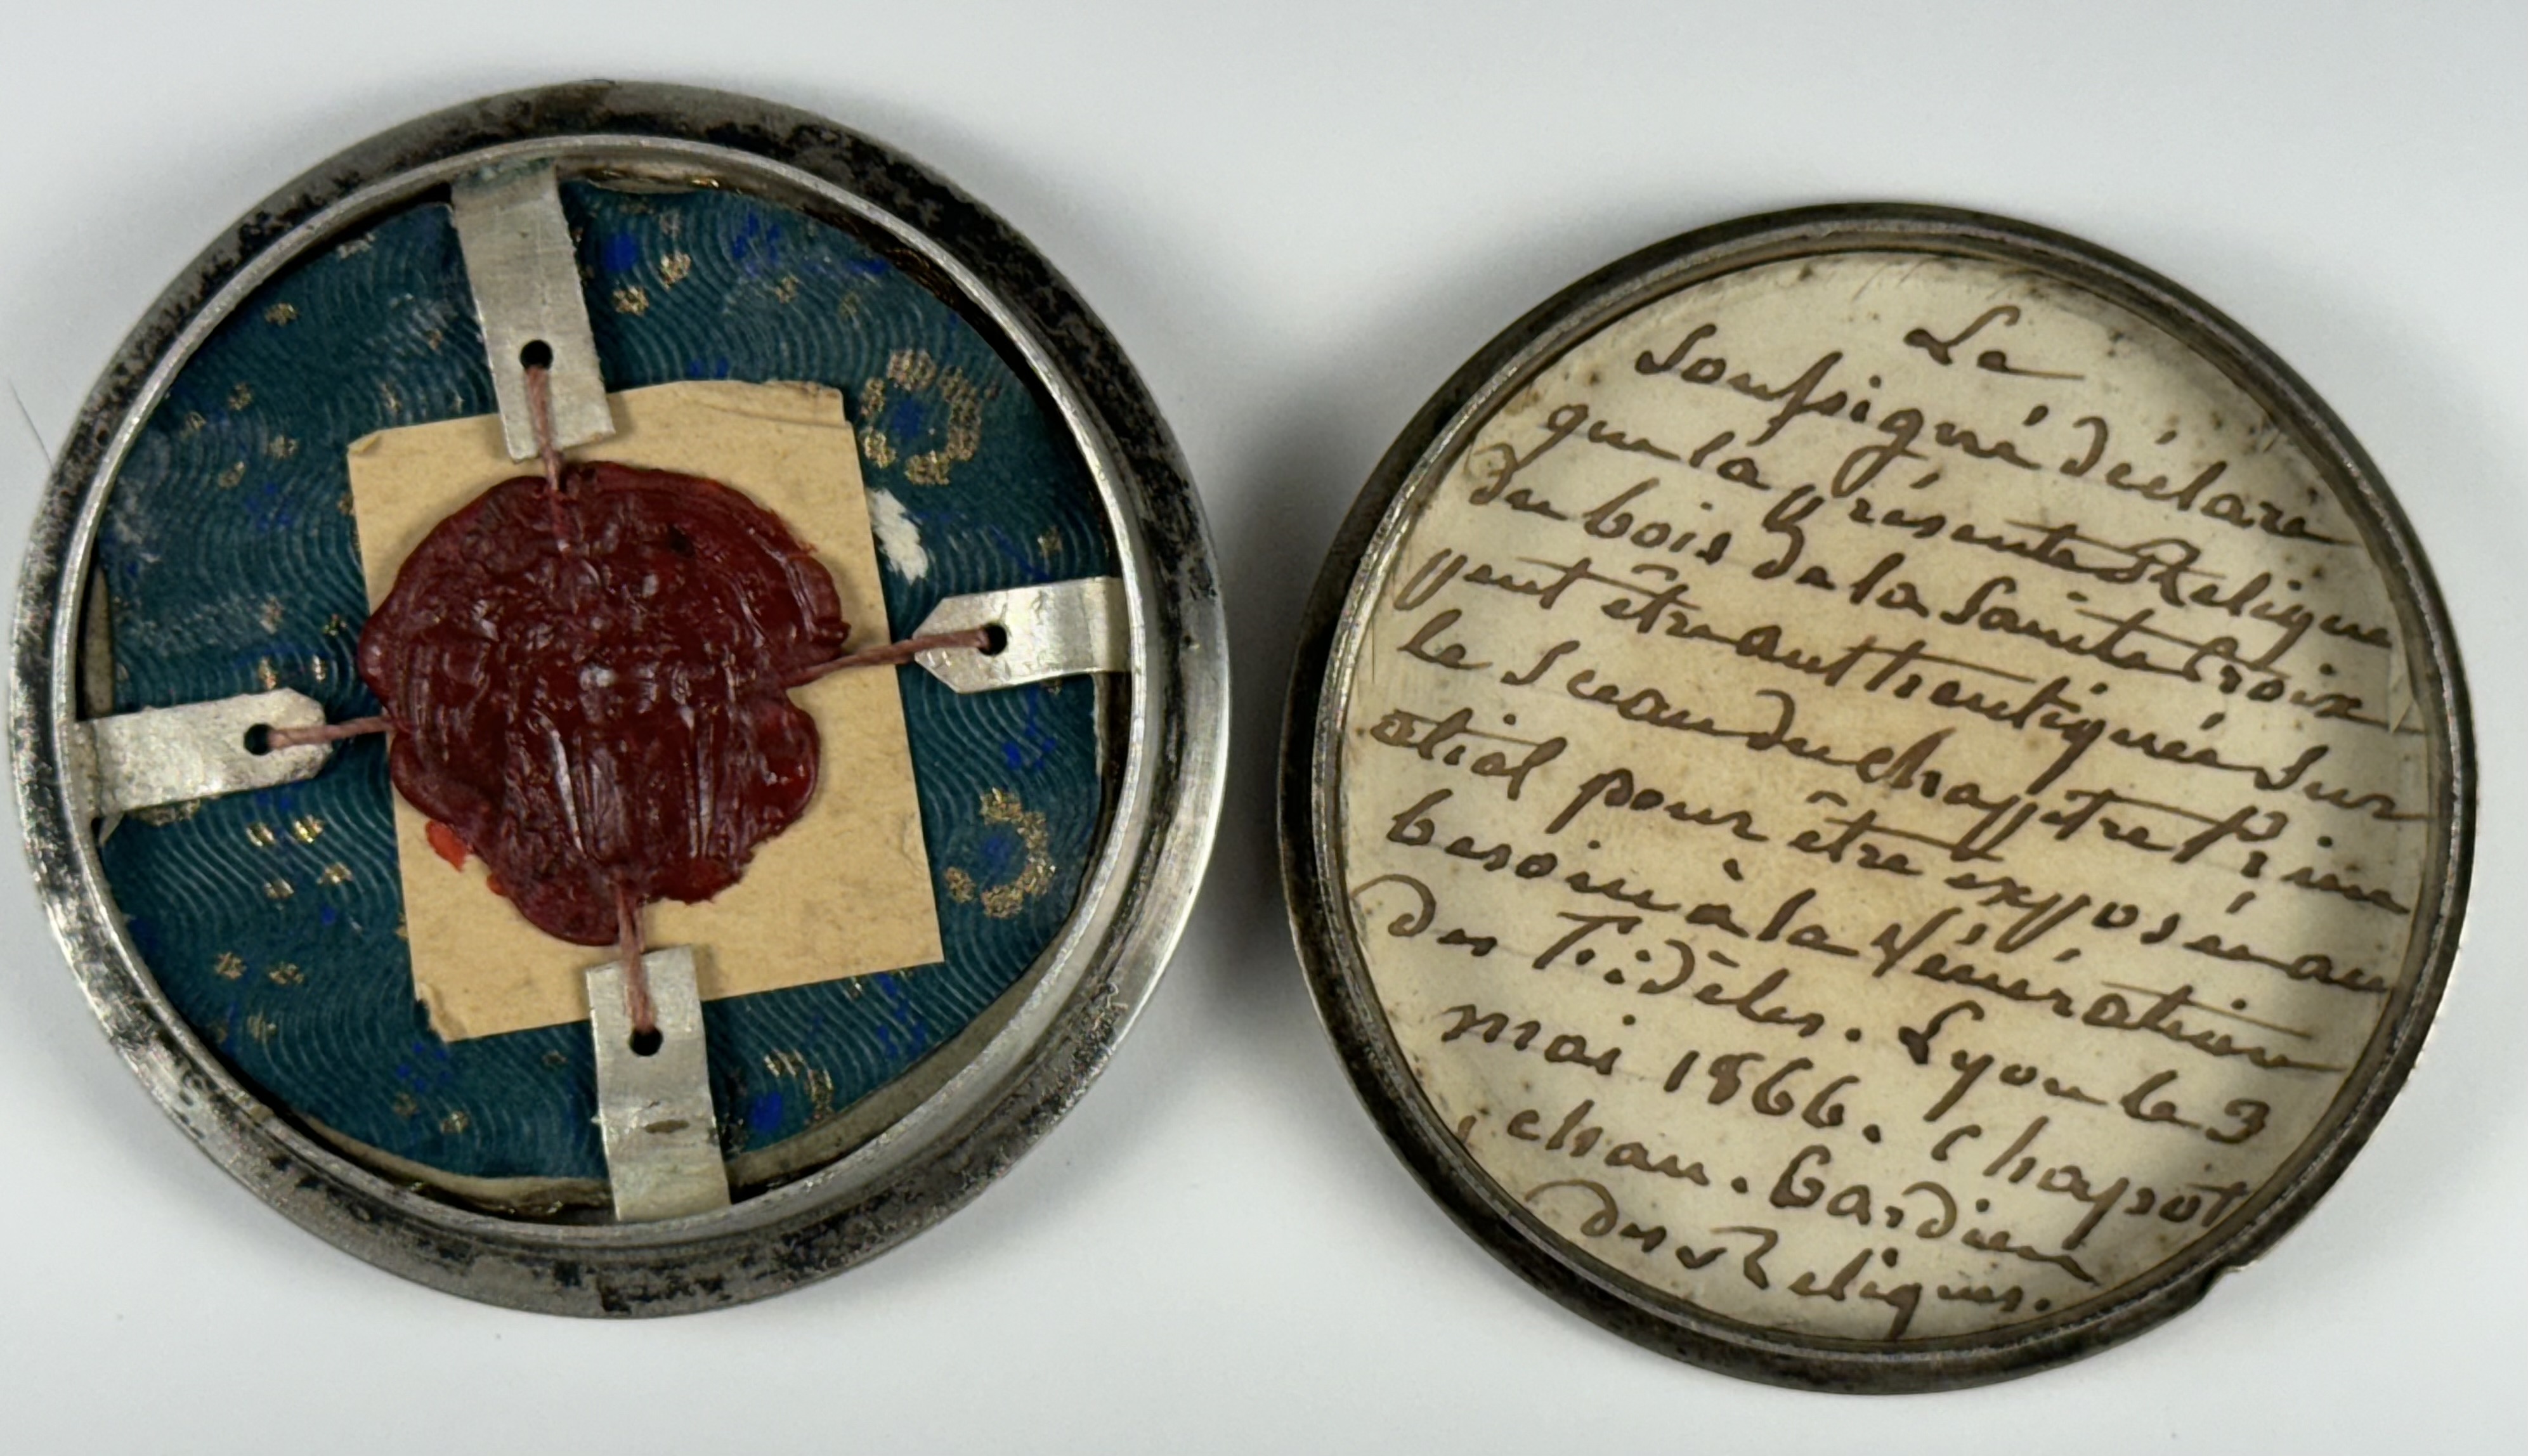 Le
Soussigné déclare
que la présente Relique
du bois de la Sainte Croix
peut être authentiquée sur
le Sceau du chapitre Prim
atial pour être exposée au
besoin à la Vénération
des Fidèles. Lyon le 3
mai 1866. Chapot
chan. Gardien
des Reliques.